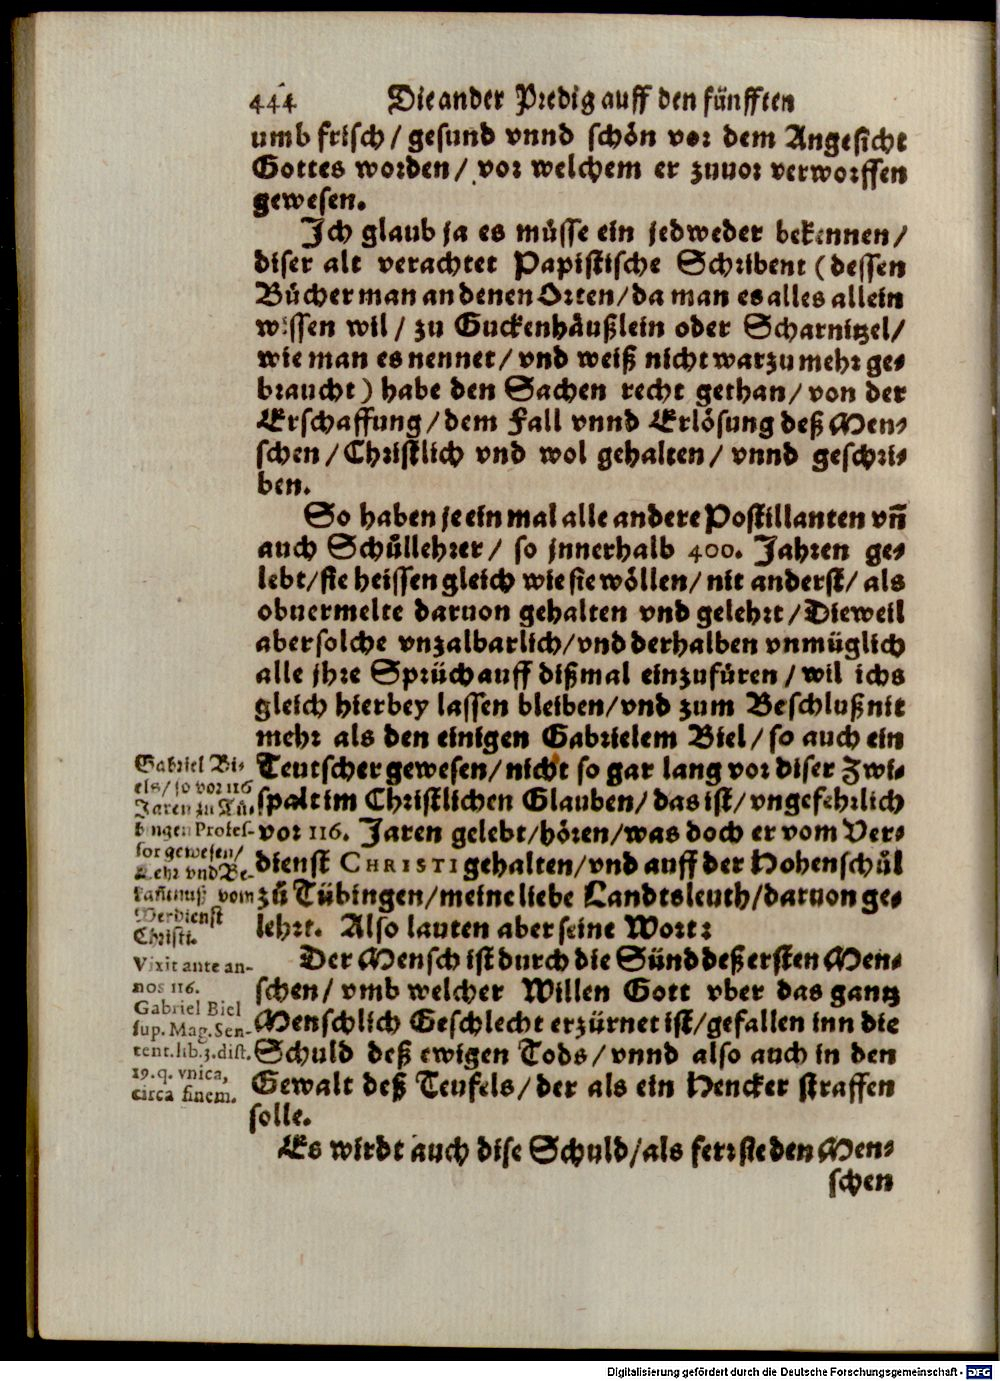 444 Die ander Predig auff den fünfften
umb frisch / gesund vnnd schön vor dem Angesicht
Gottes worden / vor welchem er zuuor verworffen
gewesen.
Ich glaub ja es müsse ein jedweder bekennen /
diser alt verachtet Papistische Schribent (dessen
Bücher man an denen Orten / da man es alles allein
wissen wil / zu Guckenhäußlein oder Scharnitzel /
wie man es nennet / vnd weiß nicht warzu mehr ge-
braucht) habe den Sachen recht gethan / von der
Erschaffung / dem Fall vnnd Erlösung deß Men-
schen / Christlich vnd wol gehalten / vnnd geschri-
ben.
So haben je ein mal alle andere Postillanten vñ
auch Schůllehrer / so jnnerhalb 400. Jahren ge-
lebt / sie heissen gleich wie sie wöllen / nit anderst / als
obuermelte daruon gehalten vnd gelehrt / Dieweil
aber solche vnzalbarlich / vnd derhalben vnmüglich
alle jhre Sprüch auff dißmal einzufüren / wil ichs
gleich hierbey lassen bleiben / vnd zum Beschluß nit
mehr als den einigen Gabrielem Biel / so auch ein
Teutscher gewesen / nicht so gar lang vor diser Zwi-
spalt im Christlichen Glauben / das ist / vngefehrlich
vor 116. Jaren gelebt / hören / was doch er vom Ver-
dienst CHRISTI gehalten / vnd auff der Hohenschůl
zů Tübingen / meine liebe Landtsleuth / daruon ge-
lehrt. Also lauten aber seine Wort:
Gabriel Bi-
els / so vor 116
Jaren zu Tü-
bingen Profes-
sor gewesen /
Lehr vnd Be-
kañtnuß vom
Verdienst
Christi.
Vixit ante an-
nos 116.
Gabriel Biel
sup. Mag. Sen-
tent. lib. 3. dist.
19. q. vnica,
circa finem.
Der Mensch ist durch die Sünd deß ersten Men-
schen / vmb welcher Willen Gott vber das gantz
Menschlich Geschlecht erzürnet ist / gefallen inn die
Schuld deß ewigen Tods / vnnd also auch in den
Gewalt deß Teufels / der als ein Hencker straffen
solle.
Es wirdt auch dise Schuld / als ferr sie den Men-
schen
Digitalisierung gefördert durch die Deutsche Forschungsgemeinschaft - DFG